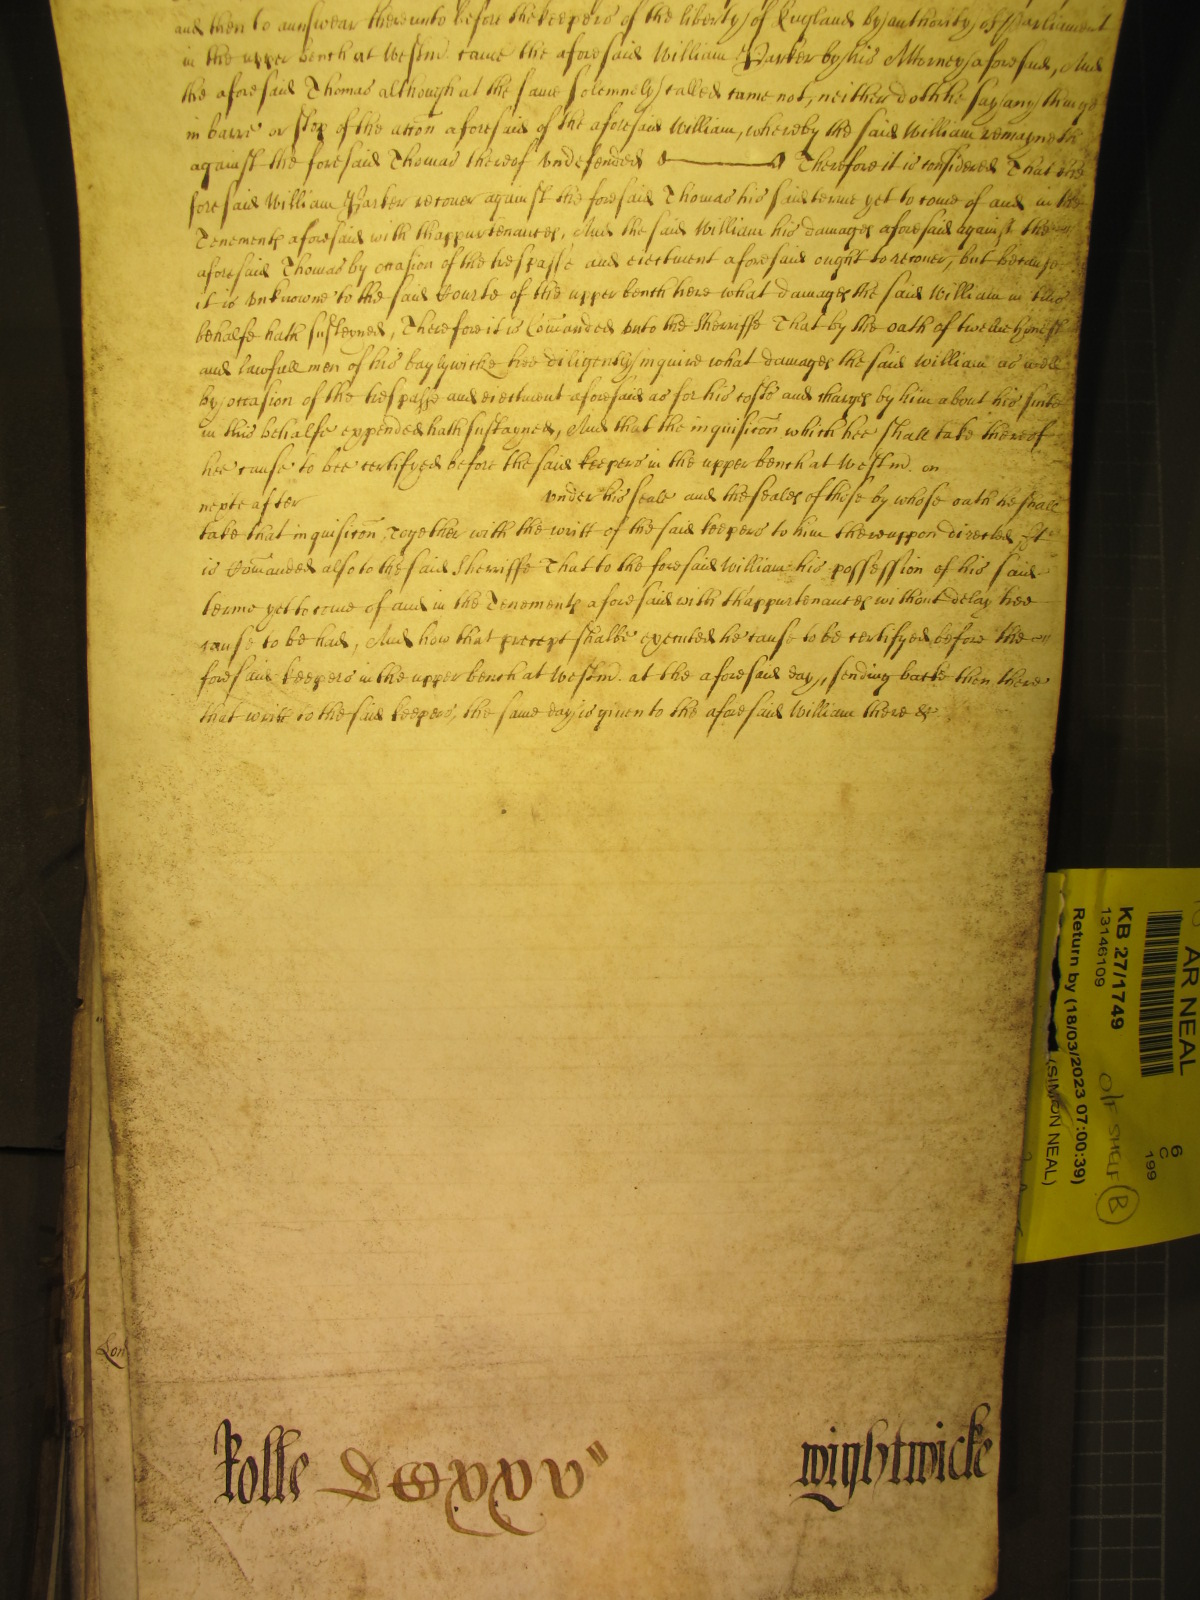 and then to aunswear thereunto before the keepers of the liberty of England by authority of Parliament
in the upper bench at Westm. came the aforesaid William Parker by his Attorney aforesaid, And
the aforesaid Thomas although at the same solemnely called came not, neither doth he say any thinge
in barre or stop of the accon aforesaid of the aforesaid William, whereby the said William remayneth
against the foresaid Thomas thereof undefended Therefore it is considered That the
foresaid William Parker recover against the foresaid Thomas his said terme yet to come of and in the
Tenements aforesaid with thappurtenances, And the said William his damages aforesaid against the
aforesaid Thomas by occasion of the trespasse and eiectment aforesaid ought to recover, but because
it is unknowne to the said Courte of the upper bench here what damages the said William in this
behalfe hath susteyned, Therefore it is Comanded unto the Sherriffe That by the oath of twelve honest
and lawfull men of his baylywicke hee diligently inquire what damages the said William as well
by occasion of the trespasse and eiectment aforesaid as for his costs and charges by him about his suite
in this behalfe expended hath sustayned, And that the inquisicon which hee shall take thereof
hee cause to bee certifyed before the said keepers in the upper bench at Westm. on
nexte after under his seale and the seales of those by whose oath he shall
take that inquisicon, together with the writt of the said keepers to him thereuppon directed, It
is Comanded also to the said Sherriffe That to the foresaid William his possession of his said
terme yet to come of and in the Tenements aforesaid with thappurtenances without delay hee
cause to be had, And how that precept shalbe executed he cause to be certifyed before the
foresaid keepers in the upper bench at Westm. at the aforesaid day, sending backe then there
that writt to the said keepers, the same day is given to the aforesaid William there &c
Lon
Rolle
wightwicke
AR NEAL
KB 27/1749
13146109
Return by (18/03/2023 07:00:39)
(SIMON NEAL)
O/F SHELF B
6
C
199